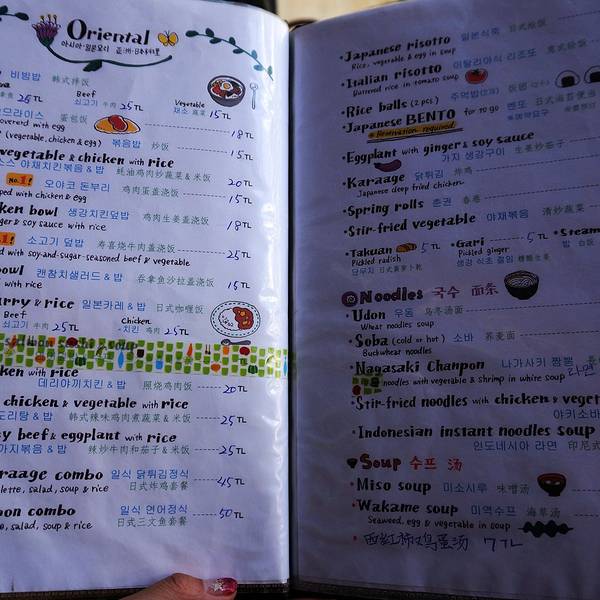 Oriental
아시아·일본요리 亚洲·日本料理
비빔밥 韩式拌饭
25TL Beef 쇠고기 牛肉 25TL Vegetable 채소 蔬菜 15TL
오므라이스 蛋包饭
covered with egg 18TL
(vegetable, chicken & egg) 볶음밥 炒饭 15TL
vegetable & chicken with rice
소스 야채치킨볶음 & 밥 蚝油鸡肉炒蔬菜 & 米饭 20TL
No.1! 오야코 돈부리 鸡肉蛋盖浇饭
topped with chicken & egg 15TL
chicken bowl 생강치킨덮밥 鸡肉生姜盖浇饭
ginger & soy sauce with rice 18TL
소고기 덮밥 寿喜烧牛肉盖浇饭
with soy-and-sugar-seasoned beef & vegetable 25TL
bowl 캔참치샐러드 & 밥 吞拿鱼沙拉盖浇饭
with rice 15TL
curry & rice 일본카레 & 밥 日式咖喱饭
Beef 쇠고기 牛肉 25TL Chicken 치킨 鸡肉 25TL
chicken with rice
데리야끼치킨 & 밥 照烧鸡肉饭 20TL
chicken & vegetable with rice
도리탕 & 밥 韩式辣味鸡肉煮蔬菜 & 米饭 25TL
beef & eggplant with rice
가지볶음 & 밥 辣炒牛肉和茄子 & 米饭 25TL
Karaage combo 일식 닭튀김정식
salad, soup & rice 日式炸鸡套餐 45TL
combo 일식 연어정식
salad, soup & rice 日式三文鱼套餐 50TL
·Japanese risotto 일본식죽 日式烩饭
Rice, vegetable & egg in soup
·Italian risotto 이탈리아식 리조또 意式烩饭
Buttered rice in tomato soup
·Rice balls (2 pcs) 주먹밥(2개) 饭团
·Japanese BENTO for to go 벤또 日式便当
Reservation required
·Eggplant with ginger & soy sauce
가지 생강구이 生姜炒茄子
·Karaage 닭튀김 炸鸡
Japanese deep fried chicken
·Spring rolls 춘권 春卷
·Stir-fried vegetable 야채볶음 清炒蔬菜
·Takuan 5TL ·Gari 5TL ·Steam
Pickled radish Pickled ginger 밥 白饭
단무지 日式黄萝卜干 생강 식초 절임 糖醋生姜
Noodles 국수 面条
·Udon 우동 乌冬汤面
Wheat noodles soup
·Soba (cold or hot) 소바 荞麦面
Buckwheat noodles
·Nagasaki Chanpon 나가사키 짬뽕
noodles with vegetable & shrimp in white soup 라면
·Stir-fried noodles with chicken & veget
야키소바
·Indonesian instant noodles soup
인도네시아 라면 印尼式
Soup 수프 汤
·Miso soup 미소시루 味噌汤
·Wakame soup 미역수프 海草汤
Seaweed, egg & vegetable in soup
·西红柿鸡蛋汤 7TL